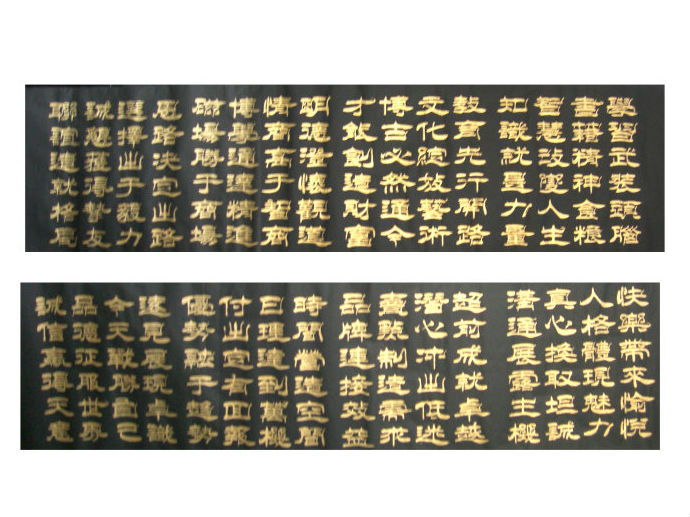 學習武裝頭腦
書籍精神食粮
智慧改變人生
知識就是力量
教育先行開路
文化綻放藝術
博古必然通今
才能創造財富
明德澄懷觀道
情商高于智商
博學通達精進
磁場勝于商場
思路决定出路
選擇出于毅力
誠懇獲得摯友
聯誼達就格局
快樂帶來愉悦
人格體現魅力
真心換取坦誠
溝通展露生機
超前成就卓越
潛心冲出低迷
賣點制造需求
品牌連接效益
時間營造空間
日理達到萬機
付出定有回報
優勢融于趨勢
遠見展現卓識
今天戰勝自己
品德征服世界
誠信贏得天意